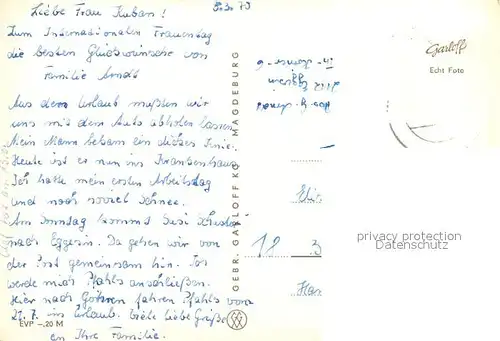 Liebe Frau Kuban!
8.3.73
Zum Internationalen Frauentag
die besten Glückwünsche von
Familie Arndt
Aus dem Urlaub mußten wir
uns mit dem Auto abholen lassen.
Mein Mann bekam ein dickes Knie.
Heute ist er nun ins Krankenhaus.
Ich hatte meinen ersten Arbeitstag
und noch soviel Schnee.
Am Sonntag kommt Susi
nach Eggesin. Da gehen wir von
der Post gemeinsam hin.
werde mich Pfahls anschließen.
Hier nach Göhren fahren Pfahls vom
21.7. in Urlaub. Viele liebe Grüße
an Ihre Familie.
EVP -,20 M
GEBR. GARLOFF KG MAGDEBURG
Garloff
Echt Foto
12 3
privacy protection
Datenschutz